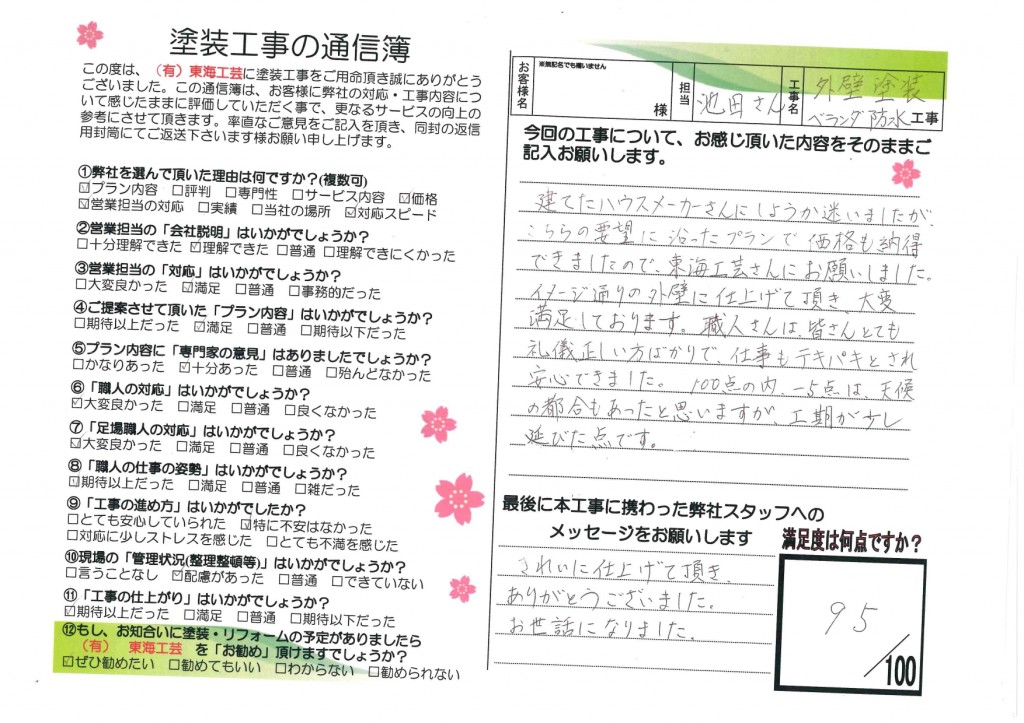 塗装工事の通信簿
この度は、（有）東海工芸に塗装工事をご用命頂き誠にありがとう
ございました。この通信簿は、お客様に弊社の対応・工事内容につ
いて感じたままに評価していただく事で、更なるサービスの向上の
参考にさせて頂きます。率直なご意見をご記入を頂き、同封の返信
用封筒にてご返送下さいます様お願い申し上げます。
①弊社を選んで頂いた理由は何ですか？(複数可)
☑プラン内容 □評判 □専門性 □サービス内容 ☑価格
☑営業担当の対応 □実績 □当社の場所 ☑対応スピード
②営業担当の「会社説明」はいかがでしょうか？
□十分理解できた ☑理解できた □普通 □理解できにくかった
③営業担当の「対応」はいかがでしょうか？
□大変良かった ☑満足 □普通 □事務的だった
④ご提案させて頂いた「プラン内容」はいかがでしょうか？
□期待以上だった ☑満足 □普通 □期待以下だった
⑤プラン内容に「専門家の意見」はありましたでしょうか？
□かなりあった ☑十分あった □普通 □殆んどなかった
⑥「職人の対応」はいかがでしょうか？
☑大変良かった □満足 □普通 □良くなかった
⑦「足場職人の対応」はいかがでしょうか？
☑大変良かった □満足 □普通 □良くなかった
⑧「職人の仕事の姿勢」はいかがでしょうか？
☑期待以上だった □満足 □普通 □雑だった
⑨「工事の進め方」はいかがでしたか？
□とても安心していられた ☑特に不安はなかった
□対応に少しストレスを感じた □とても不満を感じた
⑩現場の「管理状況(整理整頓等)」はいかがでしょうか？
□言うことなし ☑配慮があった □普通 □できていない
⑪「工事の仕上がり」はいかがでしょうか？
☑期待以上だった □満足 □普通 □期待以下だった
⑫もし、お知合いに塗装・リフォームの予定がありましたら
（有） 東海工芸 を「お勧め」頂けますでしょうか？
☑ぜひ勧めたい □勧めてもいい □わからない □勧められない
お客様名 ※無記名でも構いません 様 担当 池田さん 工事名 外壁塗装
ベランダ防水 工事
今回の工事について、お感じ頂いた内容をそのままご
記入お願いします。
建てたハウスメーカーさんにしようか迷いましたが、
こちらの要望に沿ったプランで価格も納得
できましたので、東海工芸さんにお願いしました。
イメージ通りの外壁に仕上げて頂き、大変
満足しております。職人さんは、皆さんとても
礼儀正しい方ばかりで、仕事もテキパキとされ
安心できました。 100点の内、-5点は、天候
の都合もあったと思いますが、工期が少し
延びた点です。
最後に本工事に携わった弊社スタッフへの
メッセージをお願いします
きれいに仕上げて頂き、
ありがとうございました。
お世話になりました。
満足度は何点ですか？
95
/100